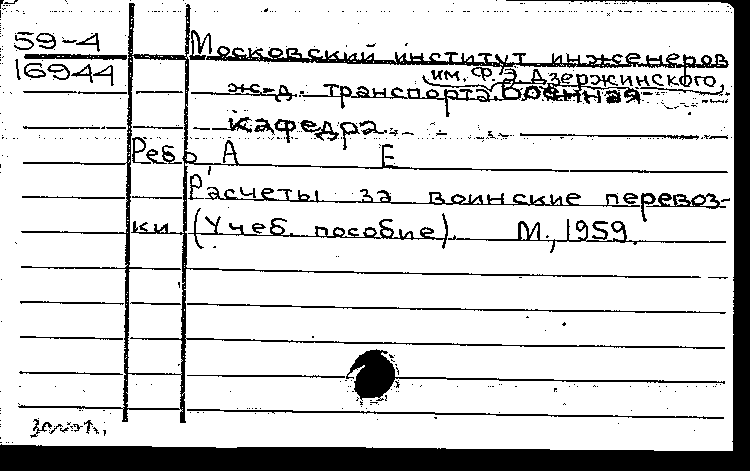 59-4
Московский институт инженеров
16944
им. Ф.Э. Дзержинского,
ж-д. транспорта. Военная
кафедра.
Ребо, А Е
Расчеты за воинские перевоз-
ки (Учеб. пособие). М., 1959.